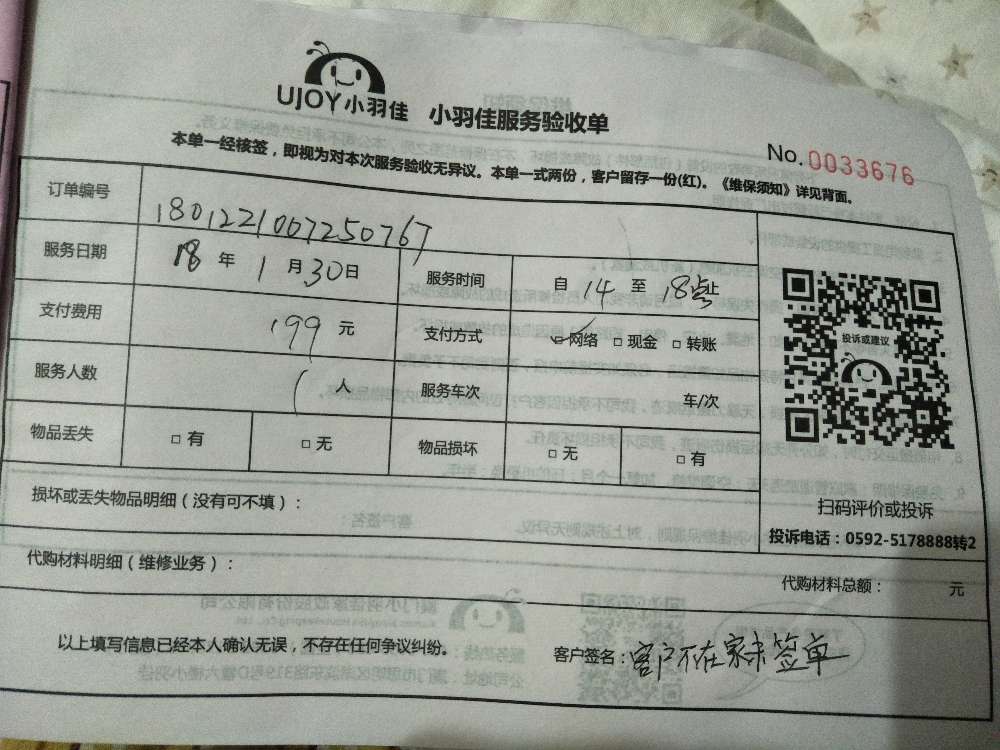 UJOY小羽佳 小羽佳服务验收单
No.0033676
本单一经核签,即视为对本次服务验收无异议。本单一式两份,客户留存一份(红)。《维保须知》详见背面。
订单编号 1801221007250767
服务日期 18 年 1 月 30 日 服务时间 自 14 至 18点止
支付费用 199 元 支付方式 ☑网络 □现金 □转账
服务人数 1 人 服务车次 车/次
物品丢失 □有 □无 物品损坏 □无 □有
投诉或建议
扫码评价或投诉
投诉电话:0592-5178888转2
损坏或丢失物品明细(没有可不填):
代购材料明细(维修业务): 代购材料总额: 元
以上填写信息已经本人确认无误,不存在任何争议纠纷。 客户签名:客户不在家未签单